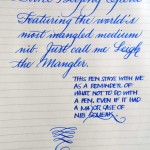 Featuring the world's
most mangled medium
nib. Just call me Leigh
the Mangler.
This pen stays with me
as a reminder of
what not to do with
a pen, even if it had
a major case of
nib squeak.